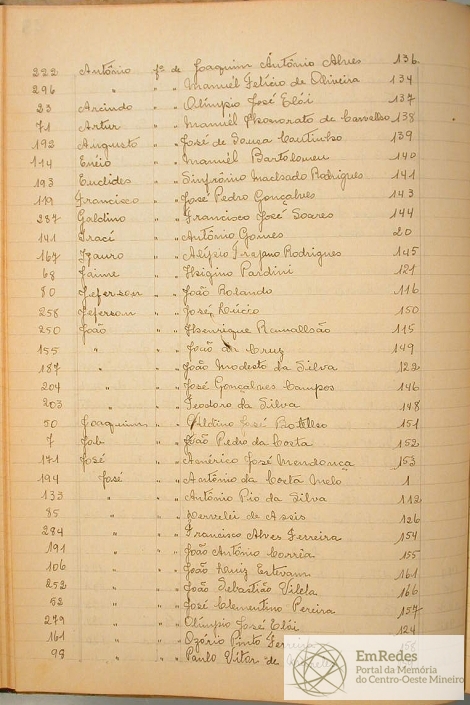 222 António fº de Joaquim António Alves 136
296 " " " Manuel Felício de Oliveira 134
23 Arcindo " " Olímpio José Elói 137
71 Artur " " Manuel Honorato de 138
192 Augusto " " José de Souza Coutinho 139
114 Enéio " " Manuel Bartolomeu 140
193 Euclides " " Sinfrônio Machado Rodrigues 141
119 Francisco " " José Pedro Gonçalves 143
237 Galdino " " Francisco José Soares 144
141 Iraci " " António Gomes 20
167 Izauro " " Alípio Trajano Rodrigues 145
68 Jaime " " Higino Pardini 121
80 Jeferson " " João Rolando 116
258 Jeferson " " José Lúcio 150
250 João " " Henrique Ramalhão 115
155 " " " João da Cruz 149
187 " " " João Modesto da Silva 122
204 " " " José Gonçalves Campos 146
203 " " " Teodoro da Silva 148
50 Joaquim " " José Botelho 151
7 Job " " João Pedro da Costa 152
171 José " " Américo José Mendonça 153
194 José " " António da Costa Melo 1
133 " " " António Pio da Silva 112
85 " " " de Assis 126
284 " " " Francisco Alves Ferreira 154
191 " " " João António Corria 155
106 " " " João Luiz Estevam 161
252 " " " João Sebastião Vilela 166
52 " " " José Clementino Pereira 157
279 " " " Olímpio José Elói 124
161 " " " Ozório Pinto Ferreira
99 " " " Paulo Vitor de
EmRedes
Portal da Memória
do Centro-Oeste Mineiro